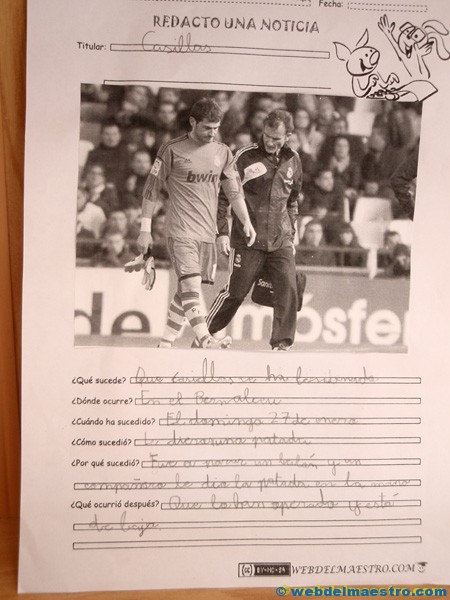 Fecha:
REDACTO UNA NOTICIA
Titular: Casillas
bwin
de mósfer
¿Qué sucede? Que casillas se ha lesionado
¿Dónde ocurre? En el Bernabeu
¿Cuándo ha sucedido? El domingo 27 de enero
¿Cómo sucedió? Le dieron una patada
¿Por qué sucedió? Fue a parar un balón y un
compañero le dio la patada en la mano
¿Qué ocurrió después? Que lo han operado y está
de baja
cc BY-NC-SA WEBDELMAESTRO.COM
© webdelmaestro.com